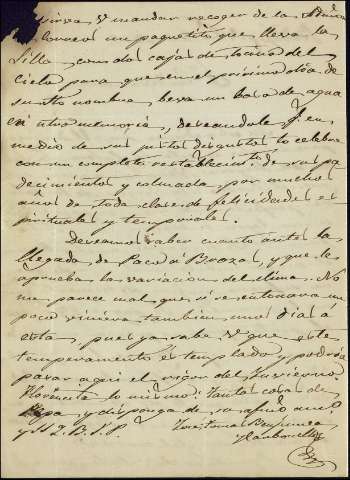 Sirva V. mandar recoger de la
Correos un paquetito que lleva la
Silla con dos cajas de tocino del
cielo para que en el próximo día de
su Sto nombre beva un baso de agua
en ntra memoria, deseandole q. en
medio de sus justos disgustos lo celebre
con un completo restablecimto. de sus pa
decimientos y colmada por muchos
años de toda clase de felicidades es
pirituales y temporales.
Deseamos saber cuanto antes la
llegada de Paco á Brozas, y que le
aprueba la variacion del clima. No
me parece mal que si se entonara un
poco viniera tambien unos dias a
esta, pues ya sabe V. que este
temperamento es templado, y podria
pasar aqui el rigor del Invierno.
Florencita lo mismo: Tantas cosas de
Pepa, y disponga de su afmo amo.
y S. S. Q. B. S. P.